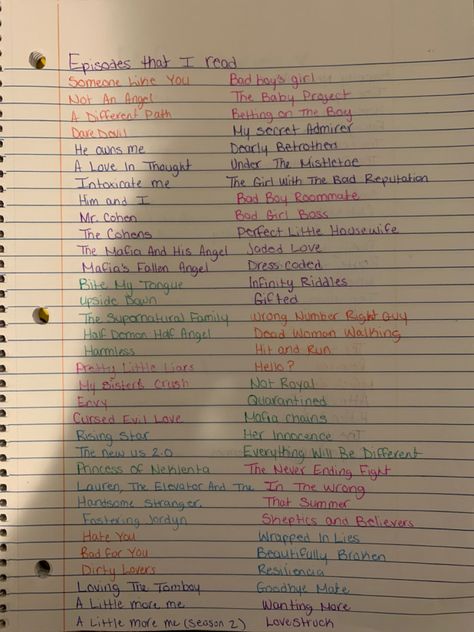 Episodes that I read
Someone Like You Bad boy's girl
Not An Angel The Baby Project
A Different Path Betting on The Boy
Dare Devil My secret Admirer
He owns me Dearly Betrothed
A Love In Thought Under The Mistletoe
Intoxicate me The Girl With The Bad Reputation
Him and I Bad Boy Roommate
Mr. Cohen Bad Girl Boss
The Cohens Perfect Little Housewife
The Mafia And His Angel Jaded Love
Mafia's Fallen Angel Dress-coded
Bite My Tongue Infinity Riddles
Upside Down Gifted
The Supornatural Family Wrong Number Right Guy
Half Demon Half Angel Dead Woman Walking
Harmless Hit and Run
Pretty Little Liars Hello?
My Sister's Crush Not Royal
Envy Quarantined
Cursed Evil Love Mafia Chains
Rising Star Her Innocence
The new us 2.0 Everything Will Be Different
Princess of The Never Ending Fight
Lauren, The Elevator And The In The Wrong
Handsome Stranger. That Summer
Fostering Jordyn Skeptics and Believers
Hate You Wrapped In Lies
Bad for You Beautifully Broken
Dirty Lovers Resiliencia
Loving The Tomboy Goodbye Mate
A Little more me Wanting More
A Little more me (Season 2) Lovestruck